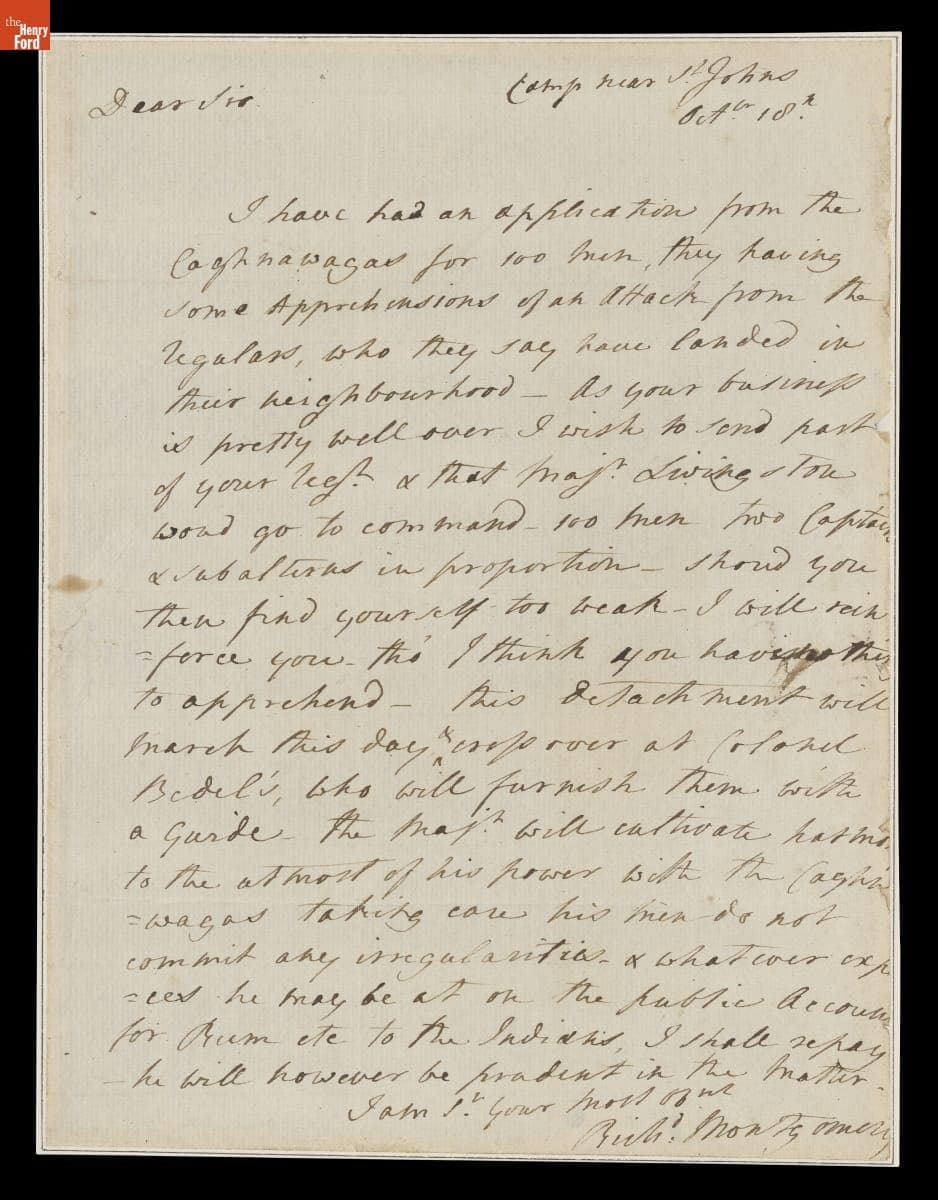 the
Henry
Ford
Camp near St Johns
Dear Sir
Octbr 18th
I have had an application from the
Caghnawagas for 100 men, they having
some Apprehensions of an Attack from the
regulars, who they say have landed in
their neighbourhood - As your business
is pretty well over I wish to send part
of your regt. & that Majr. Livingston
woud go to command - 100 men two Captain
& subalterns in proportion - shoud you
then find yourself too weak - I will rein
=force you - tho' I think you have
to apprehend - this detachment will
march this day & cross over at Colonel
Bedel's, who will furnish them with
a Guide - the Majr. will cultivate harmo
to the utmost of his power with the Caghn
=wagas taking care his men do not
commit any irregularities - & whatever exp
=ces he may be at on the public Accoun
for Rum etc to the Indians, I shall repay
- he will however be prudent in the Matter.
I am Sr. your most
Richd. Montgomery